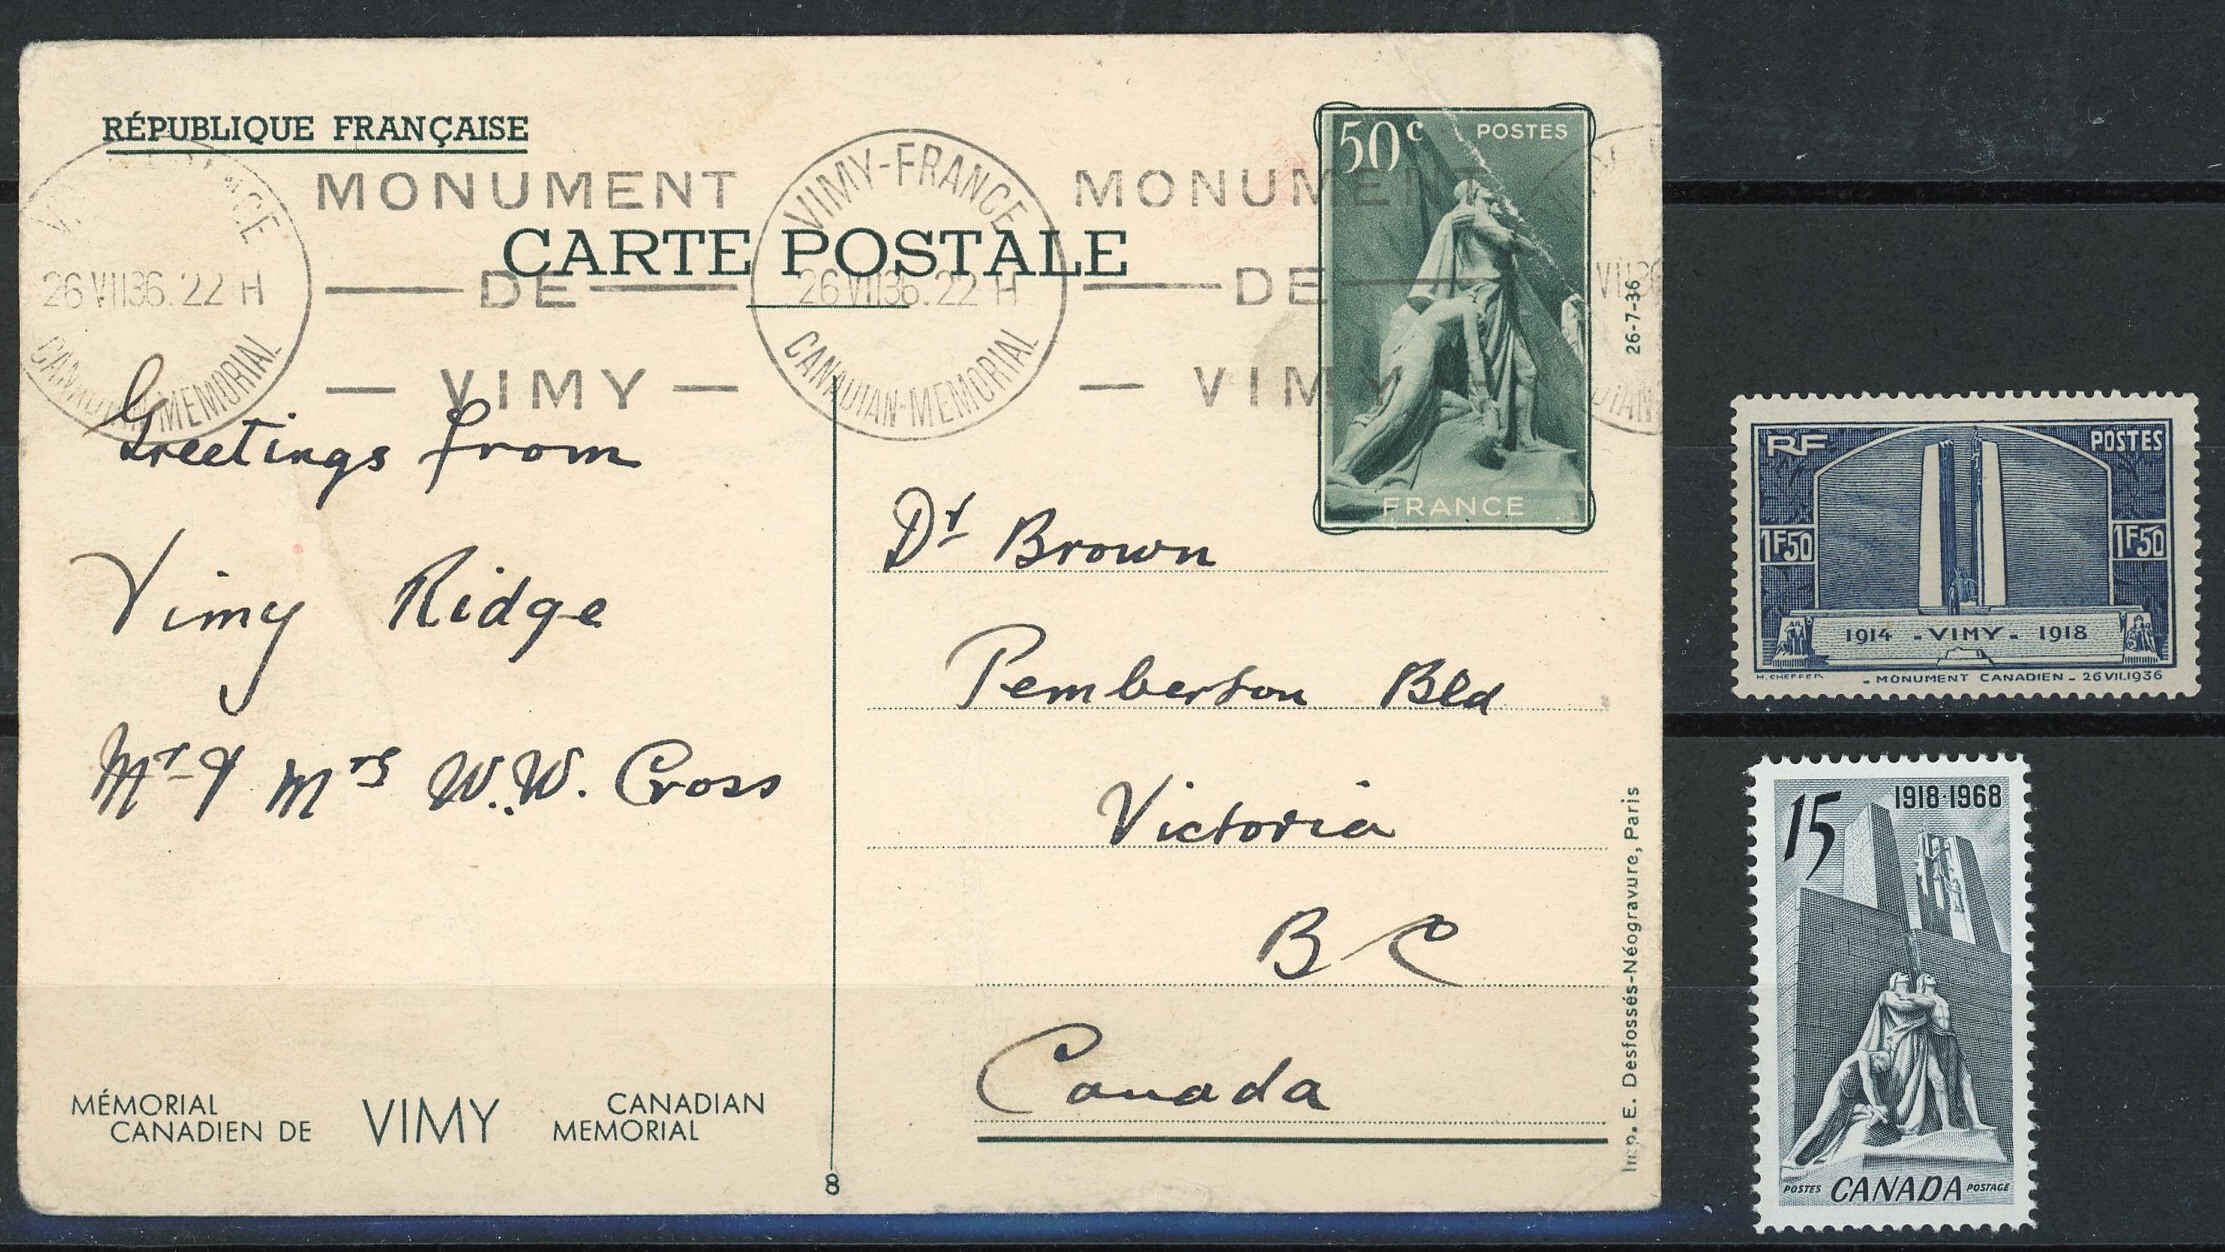 RÉPUBLIQUE FRANÇAISE
CARTE POSTALE
50c POSTES
FRANCE
26-7-36
VIMY-FRANCE
26 VII36. 22 H
CANADIAN-MEMORIAL
MONUMENT
DE
VIMY
VIMY-FRANCE
26 VII36. 22 H
CANADIAN-MEMORIAL
MONUMENT
DE
VIMY
Greetings from
Vimy Ridge
Mr & Mrs W.W. Cross
Dr Brown
Pemberton Bld
Victoria
B C
Canada
MÉMORIAL
CANADIEN DE
VIMY
CANADIAN
MEMORIAL
8
Imp. E. Desfossés-Néogravure, Paris
RF POSTES
1F50 1F50
1914 - VIMY - 1918
H. CHEFFER - MONUMENT CANADIEN - 26 VII.1936
15 1918·1968
POSTES CANADA POSTAGE